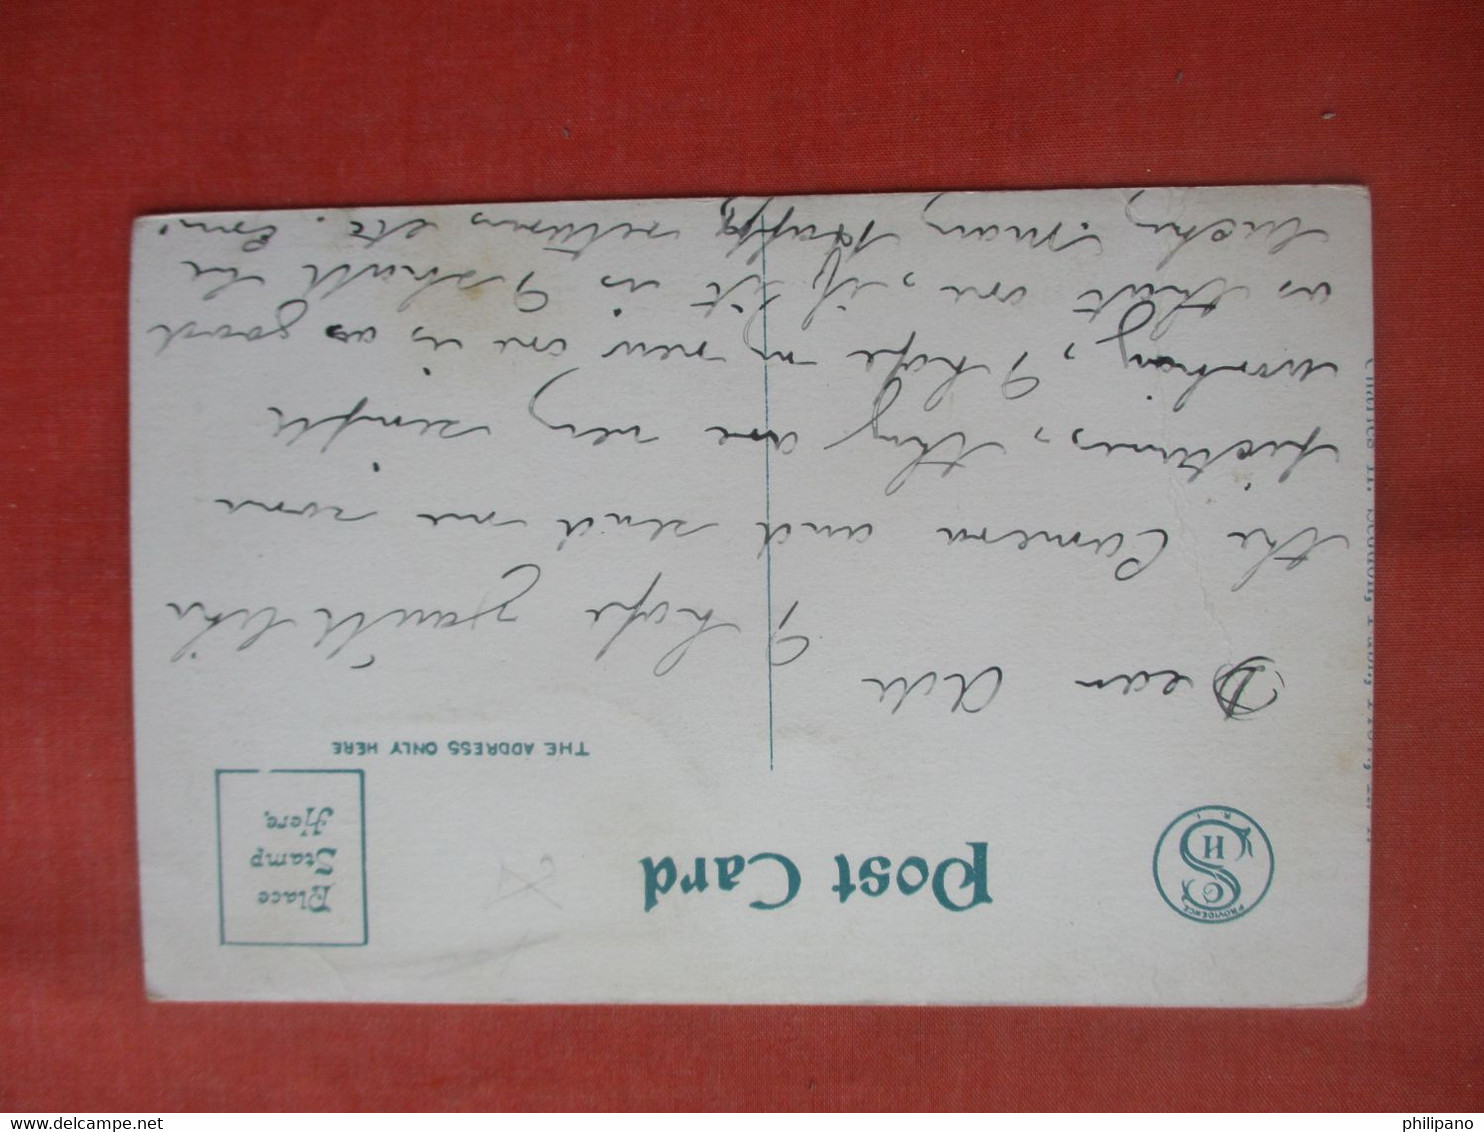 Post Card
PROVIDENCE
S H
R. I.
Place
Stamp
Here.
THE ADDRESS ONLY HERE
Dear Ada
I hope you'll like
the Camera and send me some
pictures, they are very simple
working, I hope my new one is as good
as that one, if it is I shall be
lucky. Many Happy returns etc. Em.
www.delcampe.net
philipano